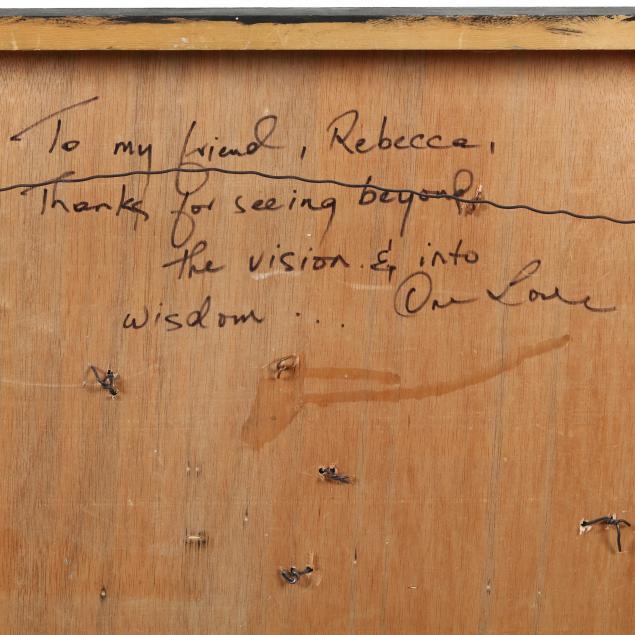 To my friend, Rebecca,
Thanks for seeing beyond
the vision & into
wisdom ... One Love